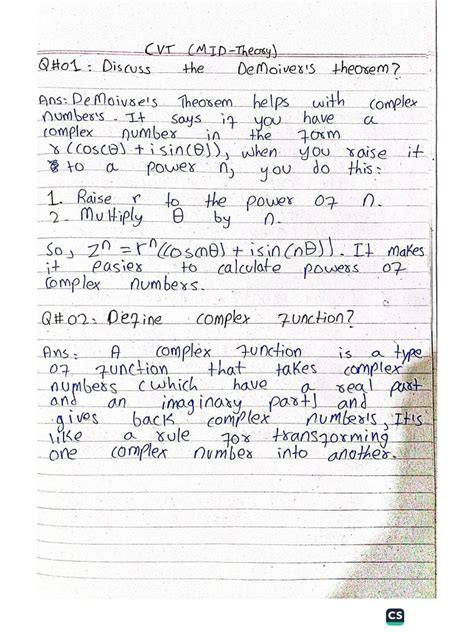 CVT (MID-Theory)
Q#01: Discuss the DeMoiver's theorem?
Ans: DeMoivre's Theorem helps with complex
numbers. It says if you have a
complex number in the form
r(cos(θ) + isin(θ)), when you raise it
to a power n, you do this:
1. Raise r to the power of n.
2. Multiply θ by n.
So, zⁿ = rⁿ(cos(nθ) + isin(nθ)). It makes
it easier to calculate powers of
complex numbers.
Q#02: Define complex function?
Ans: A complex function is a type
of function that takes complex
numbers (which have a real part
and an imaginary part) and
gives back complex number's, It is
like a rule for transforming
one complex number into another.
CS